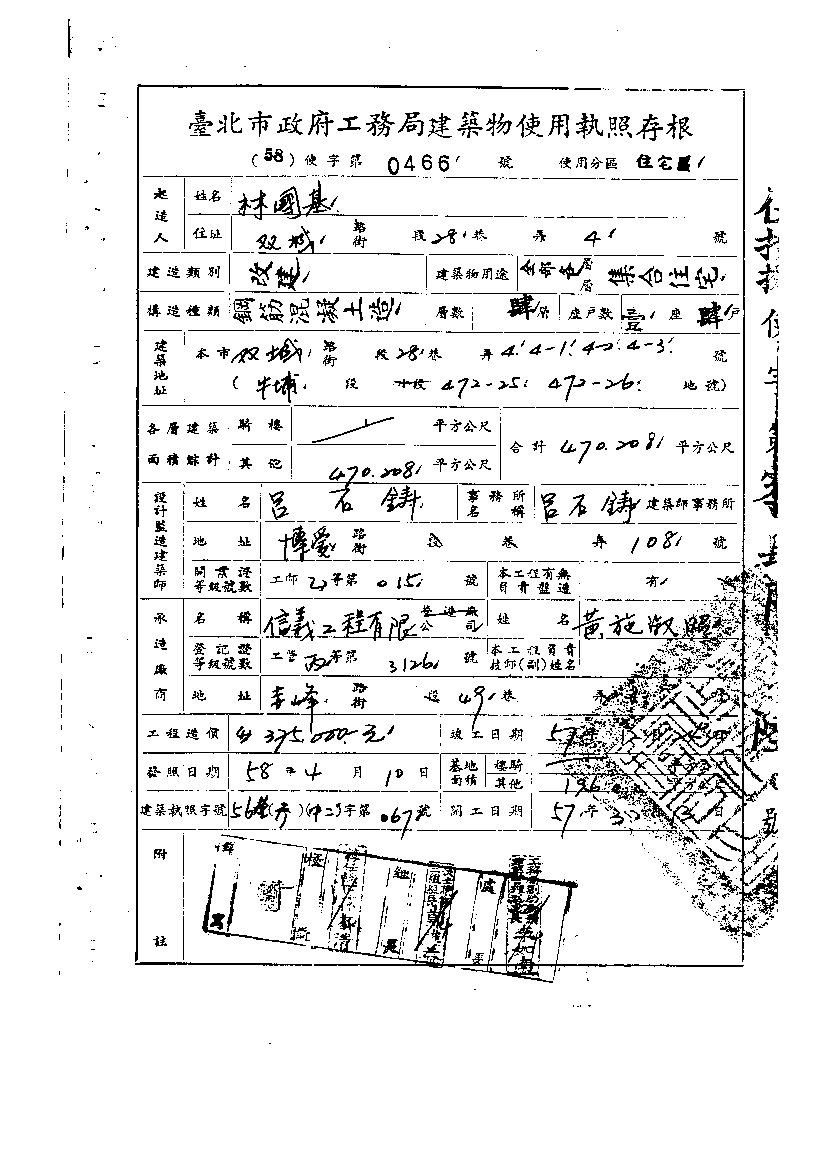 臺北市政府工務局建築物使用執照存根
(58)使字第 0466 號 使用分區 住宅區
起造人 姓名 林國基
住址 双城 路街 段 28 巷 弄 4 號
建造類別 改建 建築物用途 全部各層層 集合住宅
構造種類 鋼筋混凝土造 層數 肆層 座戶數 壹座 肆戶
建築地址 本市 双城 路街 段 28 巷 弄 4.4-1.4-2.4-3 號
(牛埔 段 小段 472-25 472-26 地號)
各層建築面積綜計 騎樓 平方公尺 合計 470.208 平方公尺
其他 470.208 平方公尺
設計監造建築師 姓名 呂石鑄 事務所名稱 呂石鑄 建築師事務所
地址 博愛 路街 段 巷 弄 108 號
開業證等級號數 工師 乙等第 015 號 本工程有無負責監造 有
承造廠商 名稱 信義工程有限 營造廠公司 姓名 黃施淑照
登記證等級號數 工營 丙等第 3126 號 本工程負責技師(副)姓名
地址 赤峰 路街 段 49 巷 弄
工程造價 375,000.元 竣工日期 57年12月 日
發照日期 58年4月10日 基地面積 騎樓 平方公尺
其他 196 平方公尺
建築執照字號 56 字第 067 號 開工日期 57年3月12日
附註